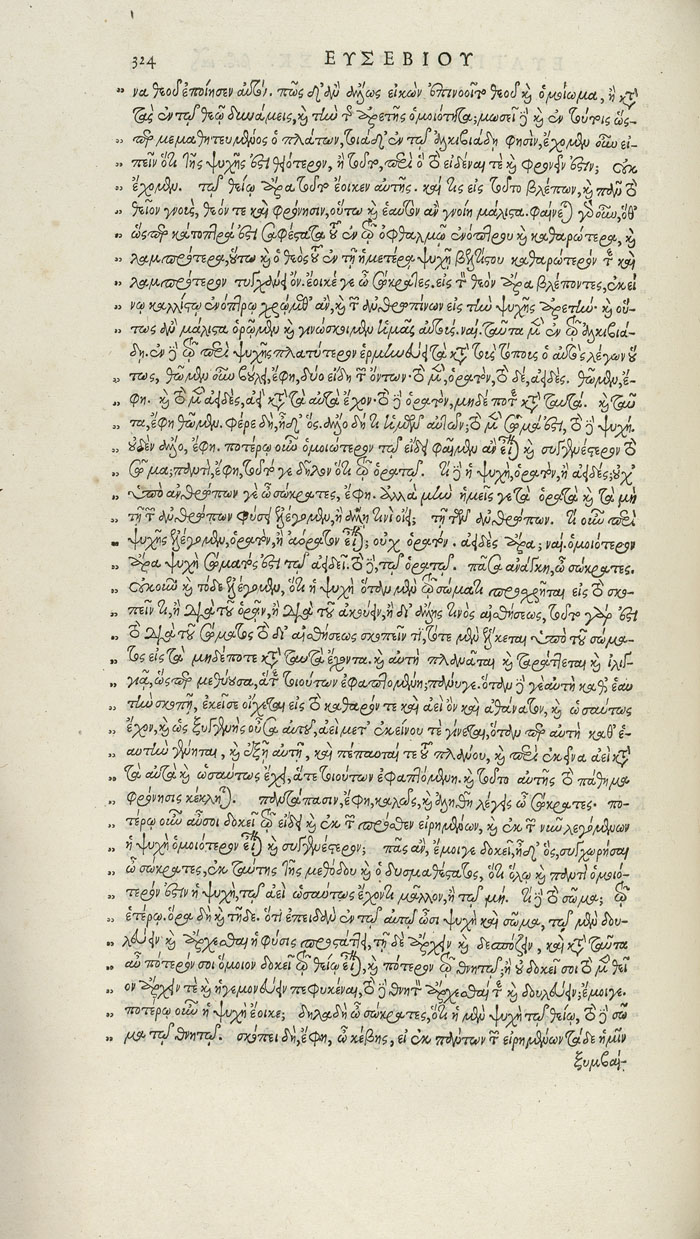 324 ΕΥΣΕΒΙΟΥ
να θεοῦ ἐποίησεν αὐτόν. πῶς δ' ἂν ἄλλως εἰκὼν ἐπινοοῖτο θεοῦ καὶ ὁμοίωμα, ἢ κατὰ
τὰς ἐν τῷ θεῷ δυνάμεις, καὶ τὴν τῆς ἀρετῆς ὁμοιότητα; μωσεῖ δὲ καὶ ἐν τούτοις ὥσ-
περ μεμαθητευμένος ὁ πλάτων, τοιάδ' ἐν τῷ ἀλκιβιάδῃ φησὶν, ἔχομεν οὖν εἰ-
πεῖν ὅτι τῆς ψυχῆς ἐστὶ θειότερον, ἢ τοῦτο, περὶ ὃ τὸ εἰδέναι τε καὶ φρονεῖν ἐστιν; οὐκ
ἔχομεν. τῷ θείῳ ἄρα τοῦτο ἔοικεν αὐτῆς. καί τις εἰς τοῦτο βλέπων, καὶ πᾶν τὸ
θεῖον γνοὺς, θεόν τε καὶ φρόνησιν, οὕτω καὶ ἑαυτὸν ἂν γνοίη μάλιστα. φαίνεται γὰρ οὖν, ὅθ'
ὥσπερ κάτοπτρά ἐστι σαφέστατα τοῦ ἐν τῷ ὀφθαλμῷ ἐνόπτρου καὶ καθαρώτερα, καὶ
λαμπρότερα, οὕτω καὶ ὁ θεὸς τοῦ ἐν τῇ ἡμετέρᾳ ψυχῇ βελτίστου καθαρώτερόν τε καὶ
λαμπρότερον τυγχάνει ὄν. ἔοικέ γε ὦ σώκρατες. εἰς τὸν θεὸν ἄρα βλέποντες, ἐκεί
νῳ καλλίστῳ ἐνόπτρῳ χρῴμεθ' ἂν, καὶ τῶν ἀνθρωπίνων εἰς τὴν ψυχῆς ἀρετήν· καὶ οὕ-
τως ἂν μάλιστα ὁρῷμεν καὶ γινώσκοιμεν ἡμᾶς αὐτούς. ναί. ταῦτα μὲν ἐν τῷ ἀλκιβιά-
δῃ. ἐν δὲ τῷ περὶ ψυχῆς πλατύτερον ἑρμηνεύει τὰ κατὰ τοὺς τόπους ὁ αὐτὸς λέγων οὕ
τως, θῶμεν οὖν βούλει, ἔφη, δύο εἴδη τῶν ὄντων· τὸ μὲν, ὁρατὸν, τὸ δὲ, ἀειδές. θῶμεν, ἔ-
φη. καὶ τὸ μὲν ἀειδὲς, ἀεὶ κατὰ τὰ αὐτὰ ἔχον· τὸ δὲ ὁρατὸν, μηδέποτε κατὰ ταυτά. καὶ ταῦ
τα, ἔφη θῶμεν. φέρε δὴ, ἦ δ' ὅς. ἄλλο δή τι ἡμῶν αὐτῶν; τὸ μὲν σῶμά ἐστι, τὸ δὲ ψυχή.
οὐδὲν ἄλλο, ἔφη. ποτέρῳ οὖν ὁμοιότερον τῷ εἴδει φαῖμεν ἂν εἶναι καὶ συγγενέστερον τὸ
σῶμα; παντὶ, ἔφη, τοῦτό γε δῆλον ὅτι τῷ ὁρατῷ. τί δὲ ἡ ψυχή, ὁρατὸν, ἢ ἀειδές; οὐχ
ὑπὸ ἀνθρώπων γε ὦ σώκρατες, ἔφη. ἀλλὰ μὴν ἡμεῖς γε τὰ ὁρατὰ καὶ τὰ μὴ
τῇ τῶν ἀνθρώπων φύσει ἐλέγομεν, ἢ ἄλλῃ τινὶ οἴει; τῇ τῶν ἀνθρώπων. τί οὖν περὶ
ψυχῆς λέγομεν, ὁρατὸν, ἢ ἀόρατον εἶναι; οὐχ ὁρατόν. ἀειδὲς ἄρα; ναί. ὁμοιότερον
ἄρα ψυχὴ σώματός ἐστι τῷ ἀειδεῖ. τὸ δὲ, τῷ ὁρατῷ. πᾶσα ἀνάγκη, ὦ σώκρατες.
οὐκοῦν καὶ τόδε ἐλέγομεν, ὅτι ἡ ψυχὴ ὅταν μὲν τῷ σώματι προσχρῆται εἰς τὸ σκο-
πεῖν τι, ἢ διὰ τοῦ ὁρᾶν, ἢ διὰ τοῦ ἀκούειν, ἢ δι' ἄλλης τινὸς αἰσθήσεως, τοῦτο γάρ ἐστι
τὸ διὰ τοῦ σώματος τὸ δι' αἰσθήσεως σκοπεῖν τί, τότε μὲν ἕλκεται ὑπὸ τοῦ σώμα-
τος εἰς τὰ μηδέποτε κατὰ ταυτὰ ἔχοντα. καὶ αὐτὴ πλανᾶται καὶ ταράττεται καὶ ἰλιγ-
γιᾷ, ὥσπερ μεθύουσα, ἅτε τοιούτων ἐφαπτομένη; πάνυ γε. ὅταν δέ γε αὐτὴ καθ' ἑαυ
τὴν σκοπῇ, ἐκεῖσε οἴχεται εἰς τὸ καθαρόν τε καὶ ἀεὶ ὂν καὶ ἀθάνατον, καὶ ὡσαύτως
ἔχον, καὶ ὡς ξυγγενὴς οὖσα αὐτοῦ, ἀεὶ μετ' ἐκείνου τε γίνεται, ὅταν περ αὐτὴ καθ' ἑ-
αυτὴν γένηται, καὶ ἐξῇ αὐτῇ, καὶ πέπαυταί τε τοῦ πλάνου, καὶ περὶ ἐκεῖνα ἀεὶ κατὰ
τὰ αὐτὰ καὶ ὡσαύτως ἔχει, ἅτε τοιούτων ἐφαπτομένη. καὶ τοῦτο αὐτῆς τὸ πάθημα
φρόνησις κέκληται. παντάπασιν, ἔφη, καλῶς, καὶ ἀληθῆ λέγεις ὦ σώκρατες. πο-
τέρῳ οὖν αὖ σοι δοκεῖ τῷ εἴδει καὶ ἐκ τῶν πρόσθεν εἰρημένων, καὶ ἐκ τῶν νῦν λεγομένων
ἡ ψυχὴ ὁμοιότερον εἶναι καὶ συγγενέστερον; πᾶς ἂν, ἔμοιγε δοκεῖ, ἦ δ' ὃς, συγχωρῆσαι
ὦ σώκρατες, ἐκ ταύτης τῆς μεθόδου καὶ ὁ δυσμαθέστατος, ὅτι ὅλῳ καὶ παντὶ ὁμοιό-
τερόν ἐστιν ἡ ψυχὴ, τῷ ἀεὶ ὡσαύτως ἔχοντι μᾶλλον, ἢ τῷ μή. τί δὲ τὸ σῶμα; τῷ
ἑτέρῳ. ὅρα δὴ καὶ τῇδε. ὅτι ἐπειδὰν ἐν τῷ αὐτῷ ὦσι ψυχὴ καὶ σῶμα, τῷ μὲν δου-
λεύειν καὶ ἄρχεσθαι ἡ φύσις προστάττει, τῇ δὲ ἄρχειν καὶ δεσπόζειν, καὶ κατὰ ταῦτα
αὖ πότερόν σοι ὅμοιον δοκεῖ τῷ θείῳ εἶναι, καὶ πότερον τῷ θνητῷ; ἢ οὐ δοκεῖ σοι τὸ μὲν θεῖ
ον ἄρχειν τὲ καὶ ἡγεμονεύειν πεφυκέναι, τὸ δὲ θνητὸν ἄρχεσθαί τε καὶ δουλεύειν; ἔμοιγε.
ποτέρῳ οὖν ἡ ψυχὴ ἔοικε; δηλαδὴ ὦ σώκρατες, ὅτι ἡ μὲν ψυχὴ τῷ θείῳ, τὸ δὲ σῶ
μα τῷ θνητῷ. σκόπει δὴ, ἔφη, ὦ κέβης, εἰ ἐκ πάντων τῶν εἰρημένων τάδε ἡμῖν
ξυμβαί-